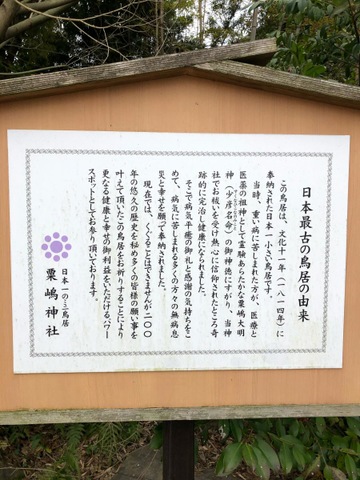 日本最古の鳥居の由来
この鳥居は、文化十一年（一八一四年）に
奉納された日本一小さい鳥居です。
当時、重い病に苦しまれた方が、医療と
医薬の祖神として霊験あらたかな粟嶋大明
神（少彦名命）の御神徳にすがり、当神
社でお祓いを受け熱心に信仰されたところ奇
跡的に完治し健康になられました。
そこで病気平癒の御礼と感謝の気持ちをこ
めて、病気に苦しまれる多くの方々の無病息
災と幸せを願って奉納されました。
現在では、くぐることはできませんが二〇〇
年の悠久の歴史を秘め多くの皆様の願い事を
叶えて頂いたこの鳥居をお祈りすることにより
更なる健康と幸せの御利益をいただけるパワー
スポットとしてお参り頂いております。
日本一のミニ鳥居
粟嶋神社